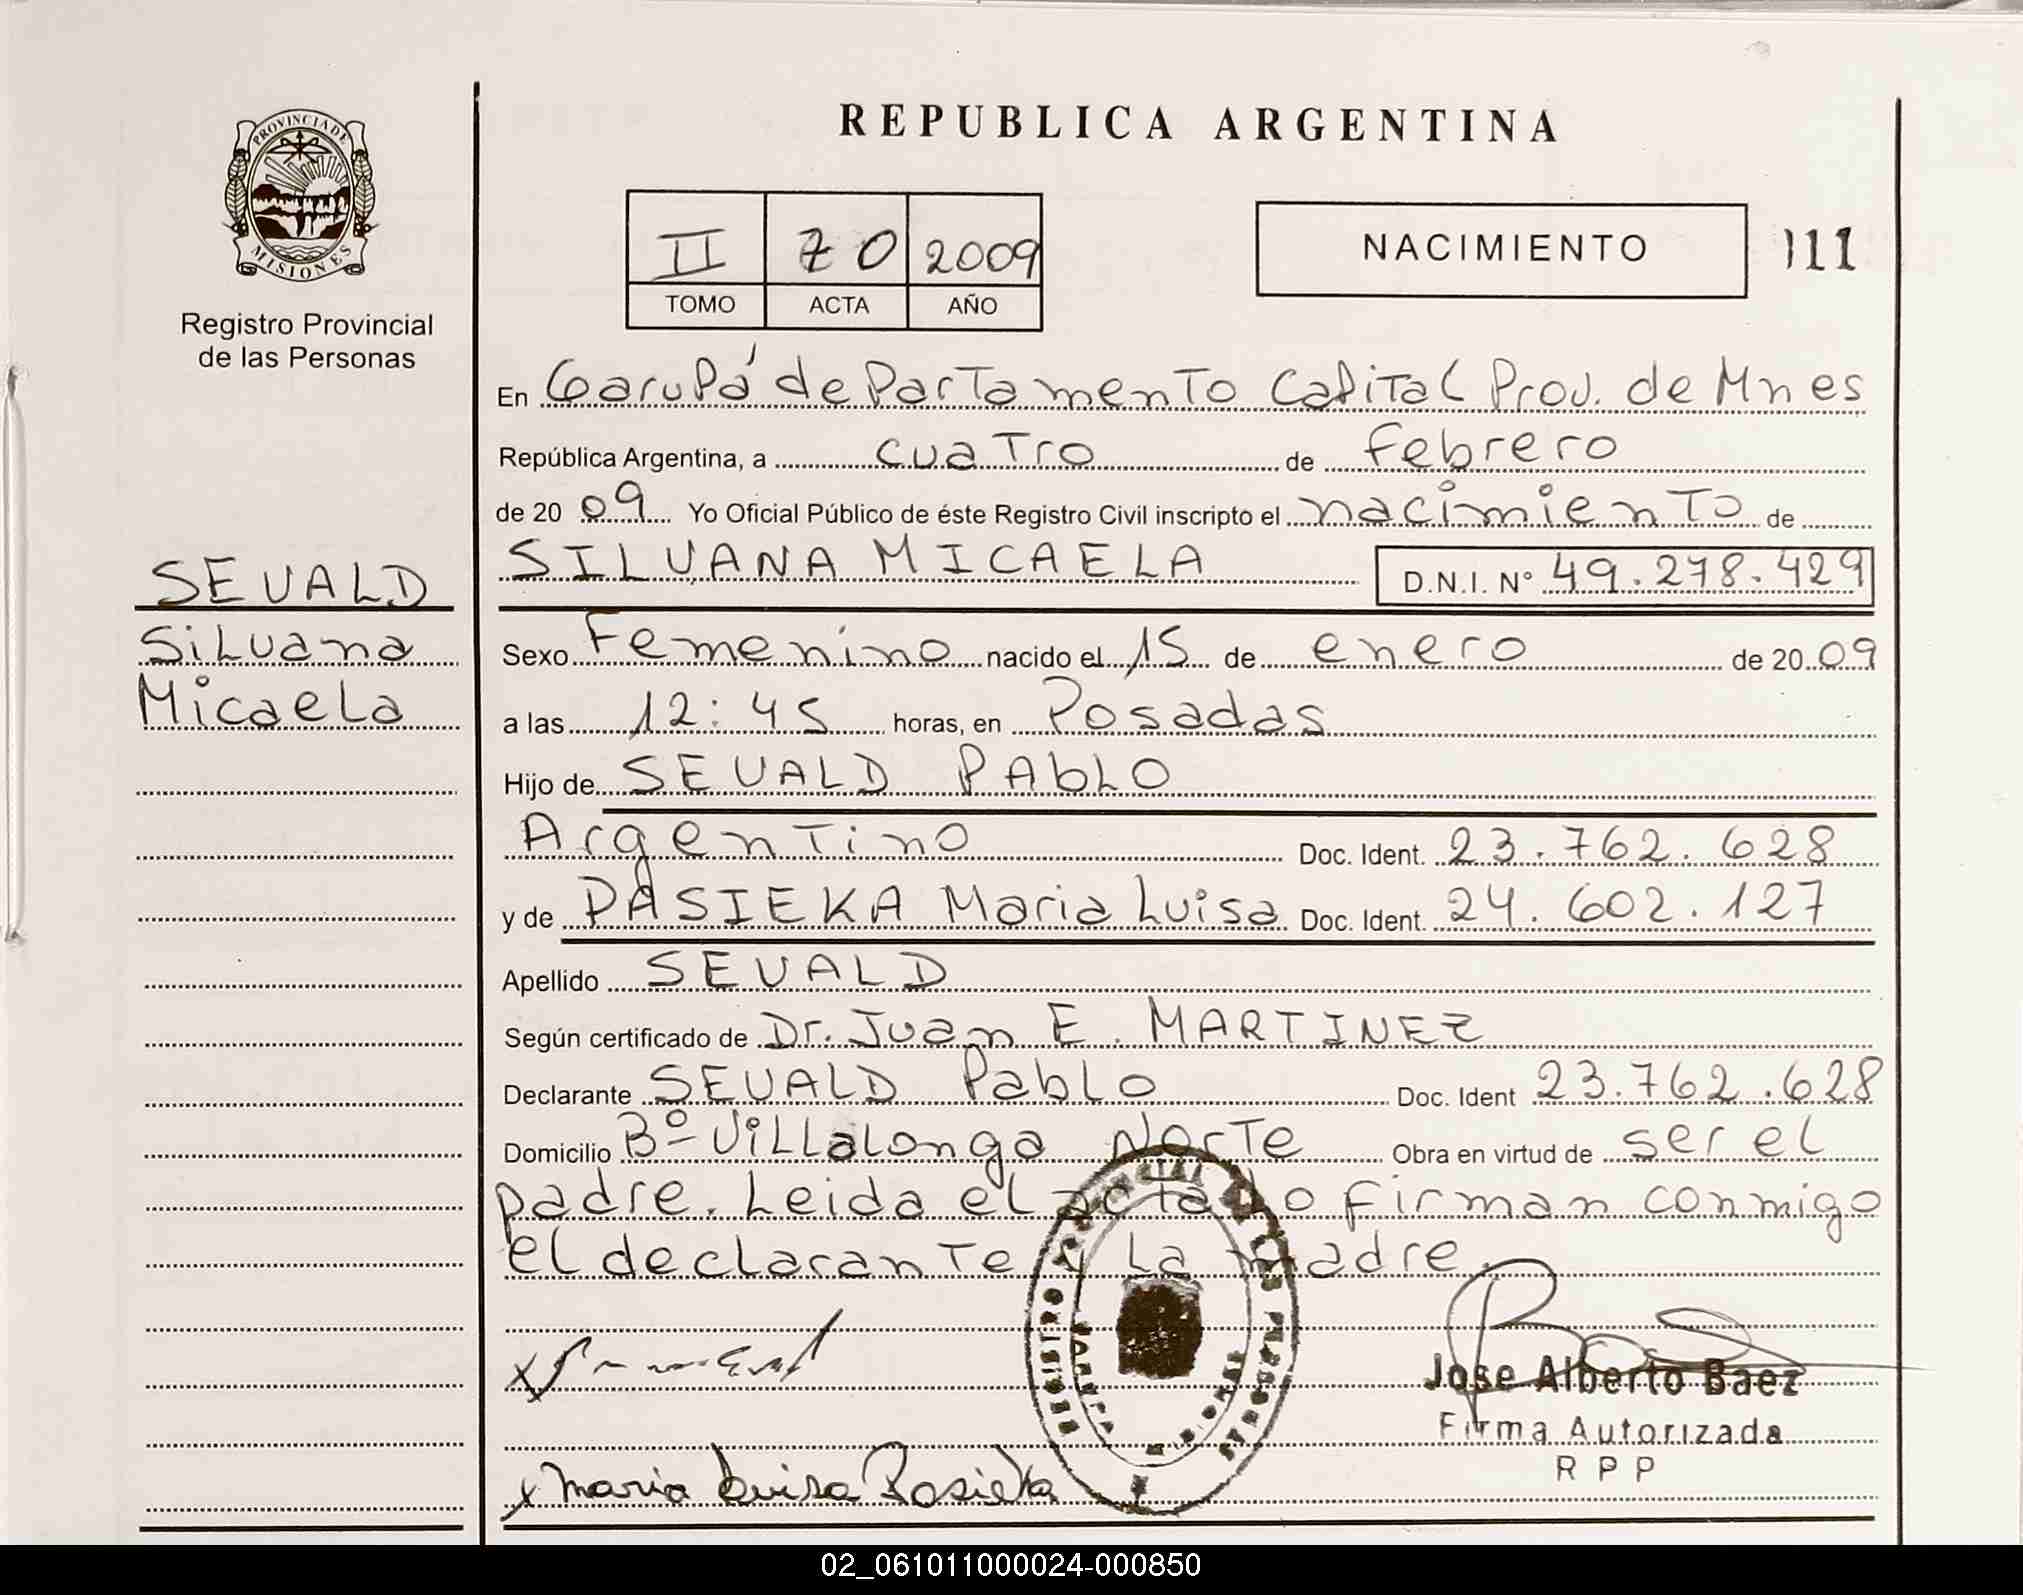 REPUBLICA ARGENTINA
PROVINCIA DE
MISIONES
Registro Provincial
de las Personas
II 70 2009
TOMO ACTA AÑO
NACIMIENTO 111
En Garupá departamento Capital Prov. de Mnes
República Argentina, a cuatro de Febrero
de 20 09 Yo Oficial Público de éste Registro Civil inscripto el nacimiento de
SEVALD
SILVANA MICAELA D.N.I. Nº 49.278.429
Silvana
Micaela
Sexo Femenino nacido el 15 de enero de 20 09
a las 12:45 horas, en Posadas
Hijo de SEVALD PABLO
Argentino Doc. Ident. 23.762.628
y de PASIEKA Maria Luisa Doc. Ident. 24.602.127
Apellido SEVALD
Según certificado de Dr. Juan E. MARTINEZ
Declarante SEVALD Pablo Doc. Ident 23.762.628
Domicilio Bº Villalonga Norte Obra en virtud de ser el
padre. Leida el acta lo firman conmigo
el declarante y La madre.
Jose Alberto Baez
Firma Autorizada
R P P
x Maria Luisa Pasieka
02_061011000024-000850